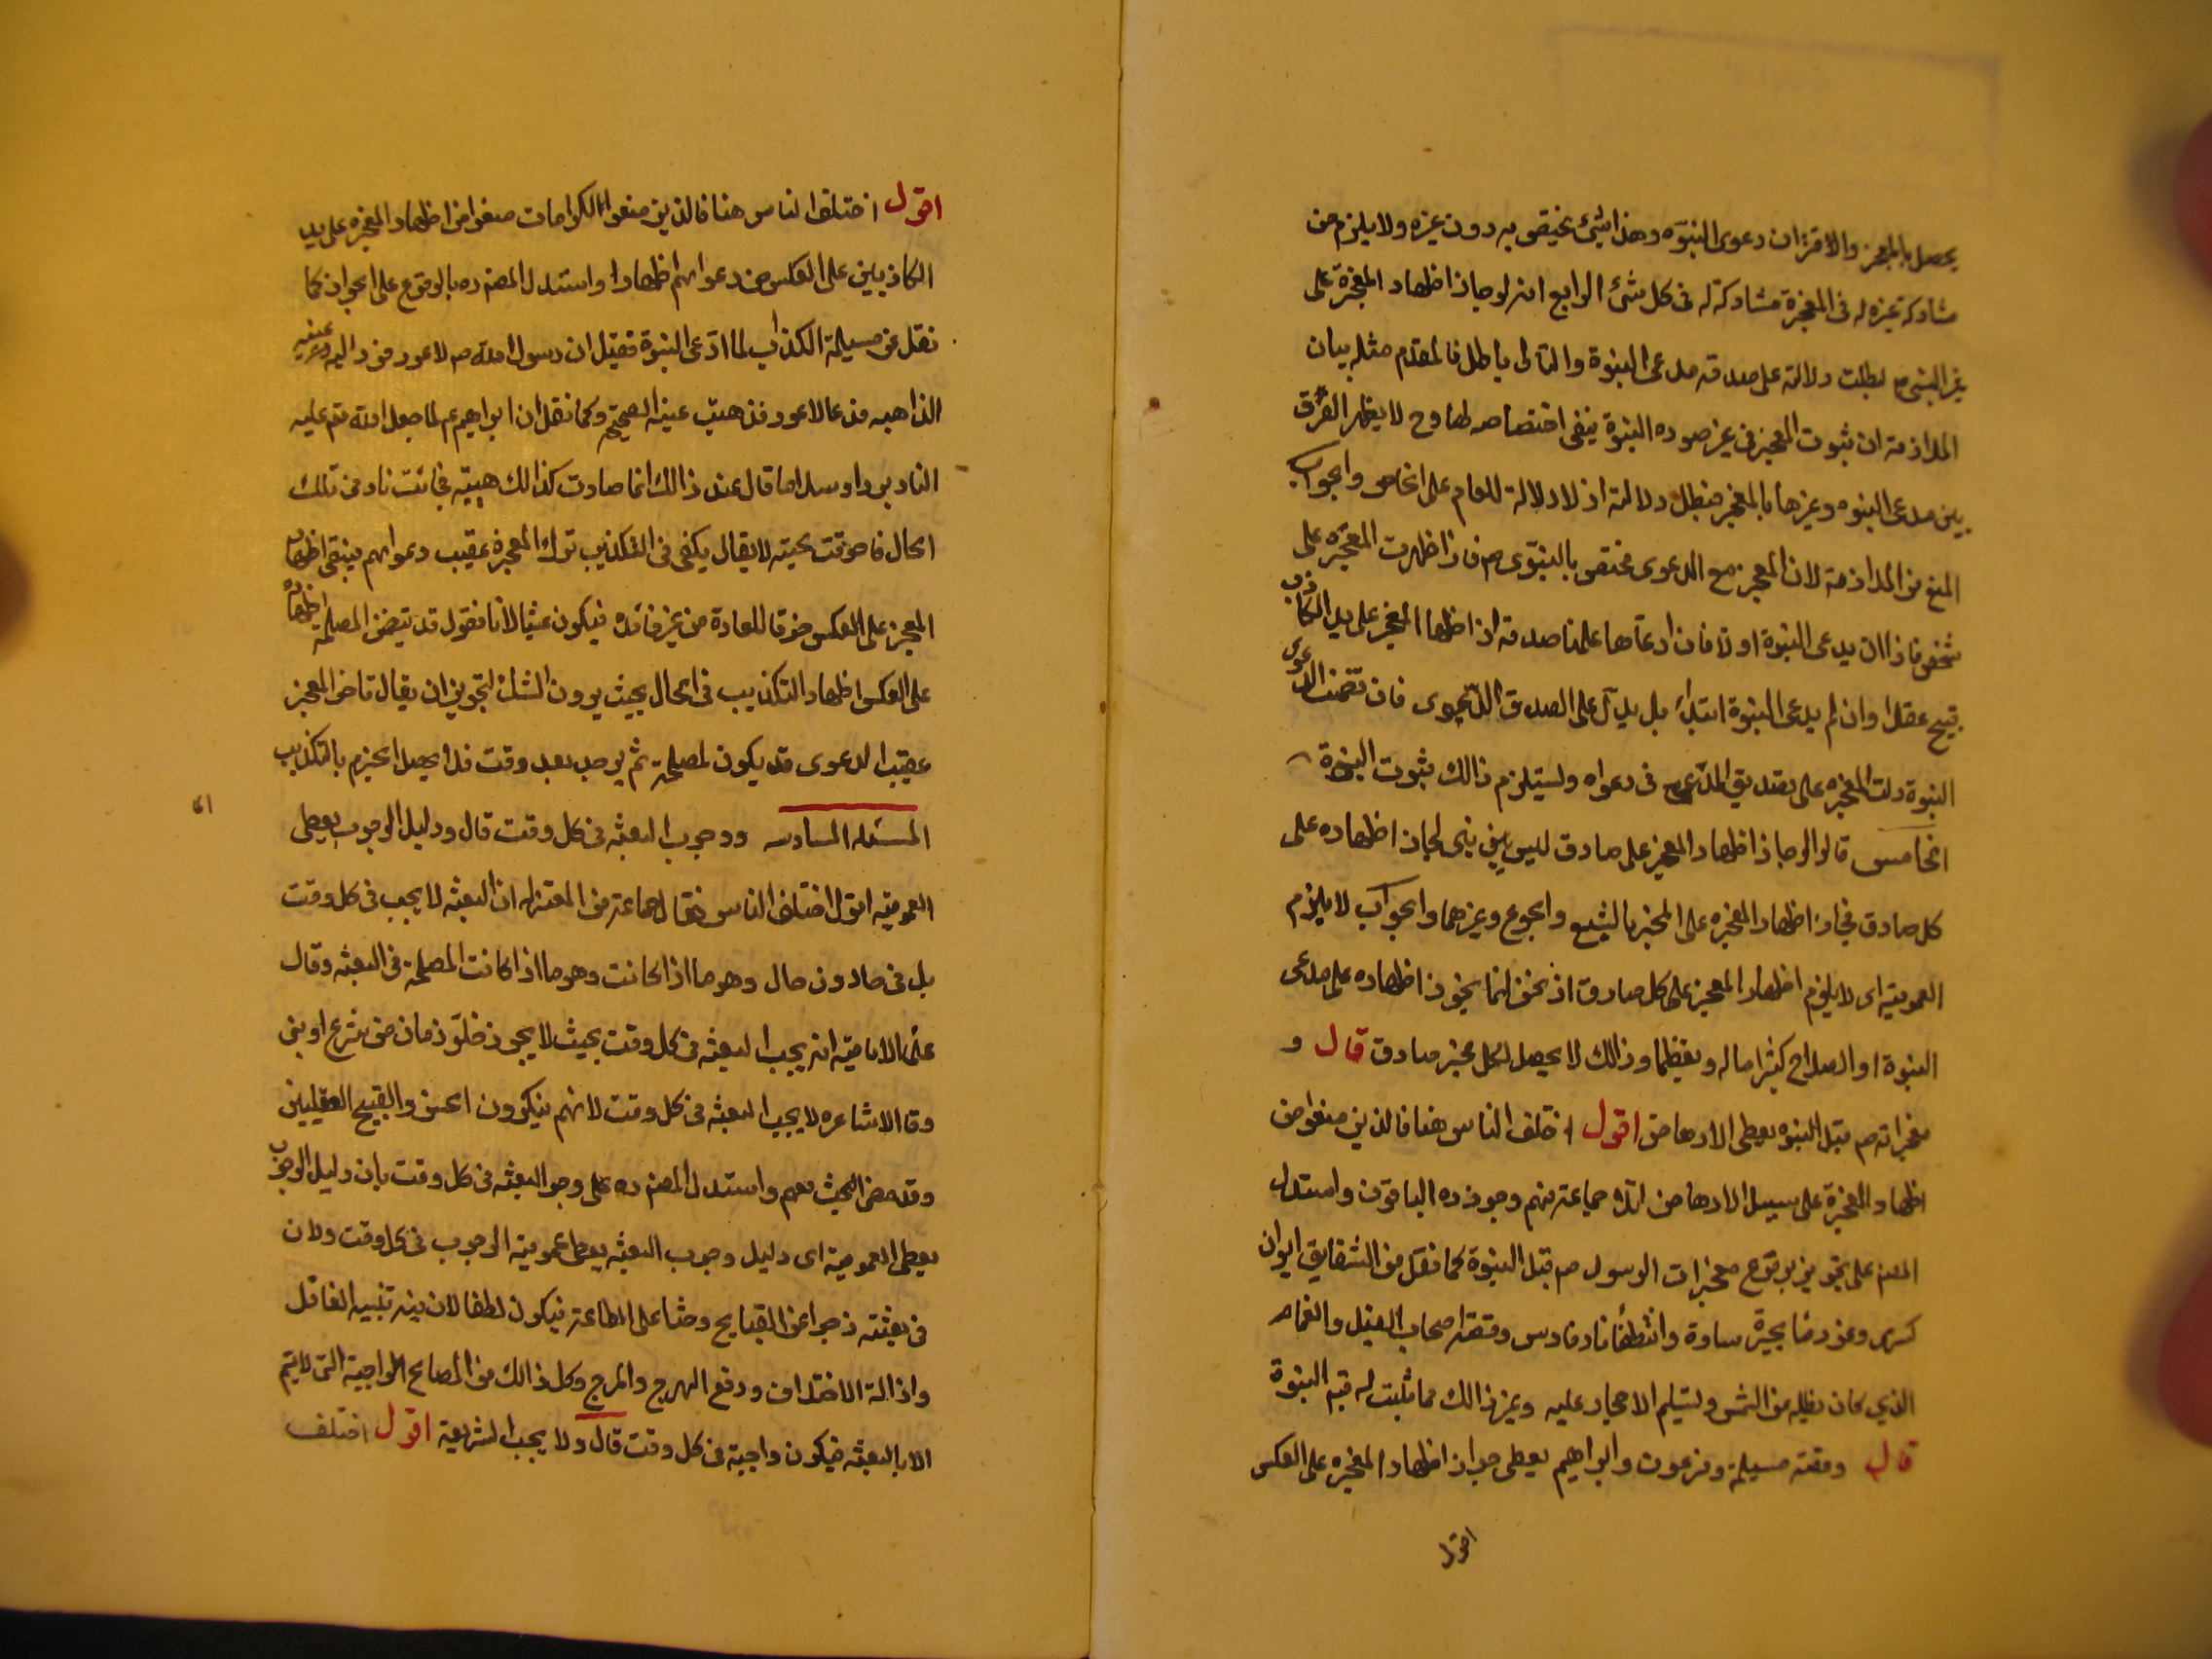 يحصل بالمعجز والاقتران دعوى النبوّه وهذا شئ يختص به دون غيره ولا يلزم من
مشاركة غيره له فى المعجزة مشاركة له فى كل شئ الرابع انه لو جاز اظهار المعجزة على
غير النبى م لبطلت دلالته على صدقه مدعى النبوة والتالى باطل فالمقدم مثله بيان
الملازمة ان ثبوت المعجز فى غير صوره النبوة ينفى اختصاصه لها وح لا يظهر الفرق
بين مدعى النبوه وغيرها بالمعجز فبطل دلالته اذ لا دلالة للعام على الخاص والجواب
المنع من الملازمة لان المعجز مع الدعوى مختص بالنبوى م فاذا ظهرت المعجزه على
شخص فاذا ان يدعى النبوة او لا فان ادعاها علمنا صدقه اذ اظهار المعجز على يد الكاذب
قبيح عقلا وان لم يدعى النبوة ابتداء بل يدل على الصدق الدعوى فان تضمنت الدعوى
النبوة دلت المعجزه على تصديق المدّعى فى دعواه ويستلزم ذالك ثبوت النبوة
الخامس قالوا لو جاز اظهار المعجز على صادق ليس بنبى لجاز اظهاره على
كل صادق فجاز اظهار المعجزه على المخبر بالشبع والجوع وغيرهما والجواب لا يلزم
العموميّه اى لا يلزم اظهار المعجز على كل صادق اذ نحن انما نجوز اظهاره على مدعى
النبوة او الصلاح كثيرا ماله وتعظيما وذالك لا يحصل لكل مخبر صادق قال و
معجزاته م قبل النبوه يعطى الارهاص اقول اختلف الناس هنا فالذين منعوا من
اظهار المعجزة على سبيل الارهاص الا جماعة منهم وجوزه الباقون واستدل
المصنم على تجويزه بوقوع معجزات الرسول م قبل النبوة كما نقل من انشقاق ايوان
كسرى وغور ماء بحيرة ساوة وانطفاء نار فارس وقصة اصحاب الفيل والغمام
الذي كان يظله من الشمس وتسليم الاحجار عليه وغير ذالك مما ثبت له قبل النبوة
قال وقصّه مسيلمة وفرعون وابراهيم يعطى جواز اظهار المعجزه على العكس
اقول
اقول اختلف الناس هنا فالذين منعوا الكرامات منعوا من اظهار المعجزه على يد
الكاذبين على العكس من دعواهم اظهارا واستدل المصنم ره بالوقوع على الجواز كما
نقل عن مسيلمة الكذاب لما ادّعى النبوة فقيل ان رسول الله م دعا لاعور فرد اليه عينه
الذاهبه فدعا لاعور فذهبت عينه الصحيحة وكما نقل ان ابراهيم ع لما جعل الله تم عليه
النار بردا وسلاما قال عند ذالك انما صارت كذالك هيبته فجائت نار فى تلك
الحال فاحرقت لحيته لا يقال يكفى فى التكذيب ترك المعجزة عقيب دعواهم فيبقى اظهار
المعجز على العكس خرقا للعادة من غير فائدة فيكون عبثا لانا نقول قد يتضمن المصلحة اظهاره
على العكس اظهار التكذيب فى الحال بحيث يرون الشك لتجويز ان يقال تاخر المعجز
عقيب الدعوى قد يكون لمصلحة ثم يوجد بعد وقت فلا يحصل الجزم بالتكذيب
المسئله السادسه ووجوب البعثه فى كل وقت قال ودليل الوجوب يعطى
العموميّه اقول اختلف الناس فقال جماعة من المعتزله ان البعثه لا يجب فى كل وقت
بل فى حال دون حال وهو ما اذا كانت وهو ما اذا كانت المصلحة فى البعثه وقال
علماء الاماميّه انه يجب البعثه فى كل وقت بحيث لا يجوز خلوّ زمان من شرع او نبى
وقا الاشاعره لا يجب البعثه فى كل وقت لانهم ينكرون الحسن والقبح العقليين
وقد مضى البحث معهم واستدل المصنم ره على وجو البعثه فى كل وقت بان دليل الوجوب
يعطى العموميّة اى دليل وجوب البعثه يعطى عموميّة الوجوب فى كل وقت ولان
فى بعثته زجرا عن القبايح وحثا على الطاعة فيكون لطفا لان فيه تنبيه الغافل
وازالة الاختلاف ودفع الهرج والمرج وكل ذالك من المصالح الواجبة التى لا يتم
الا بالبعثه فيكون واجبة فى كل وقت قال ولا يجب الشريعة اقول اختلف